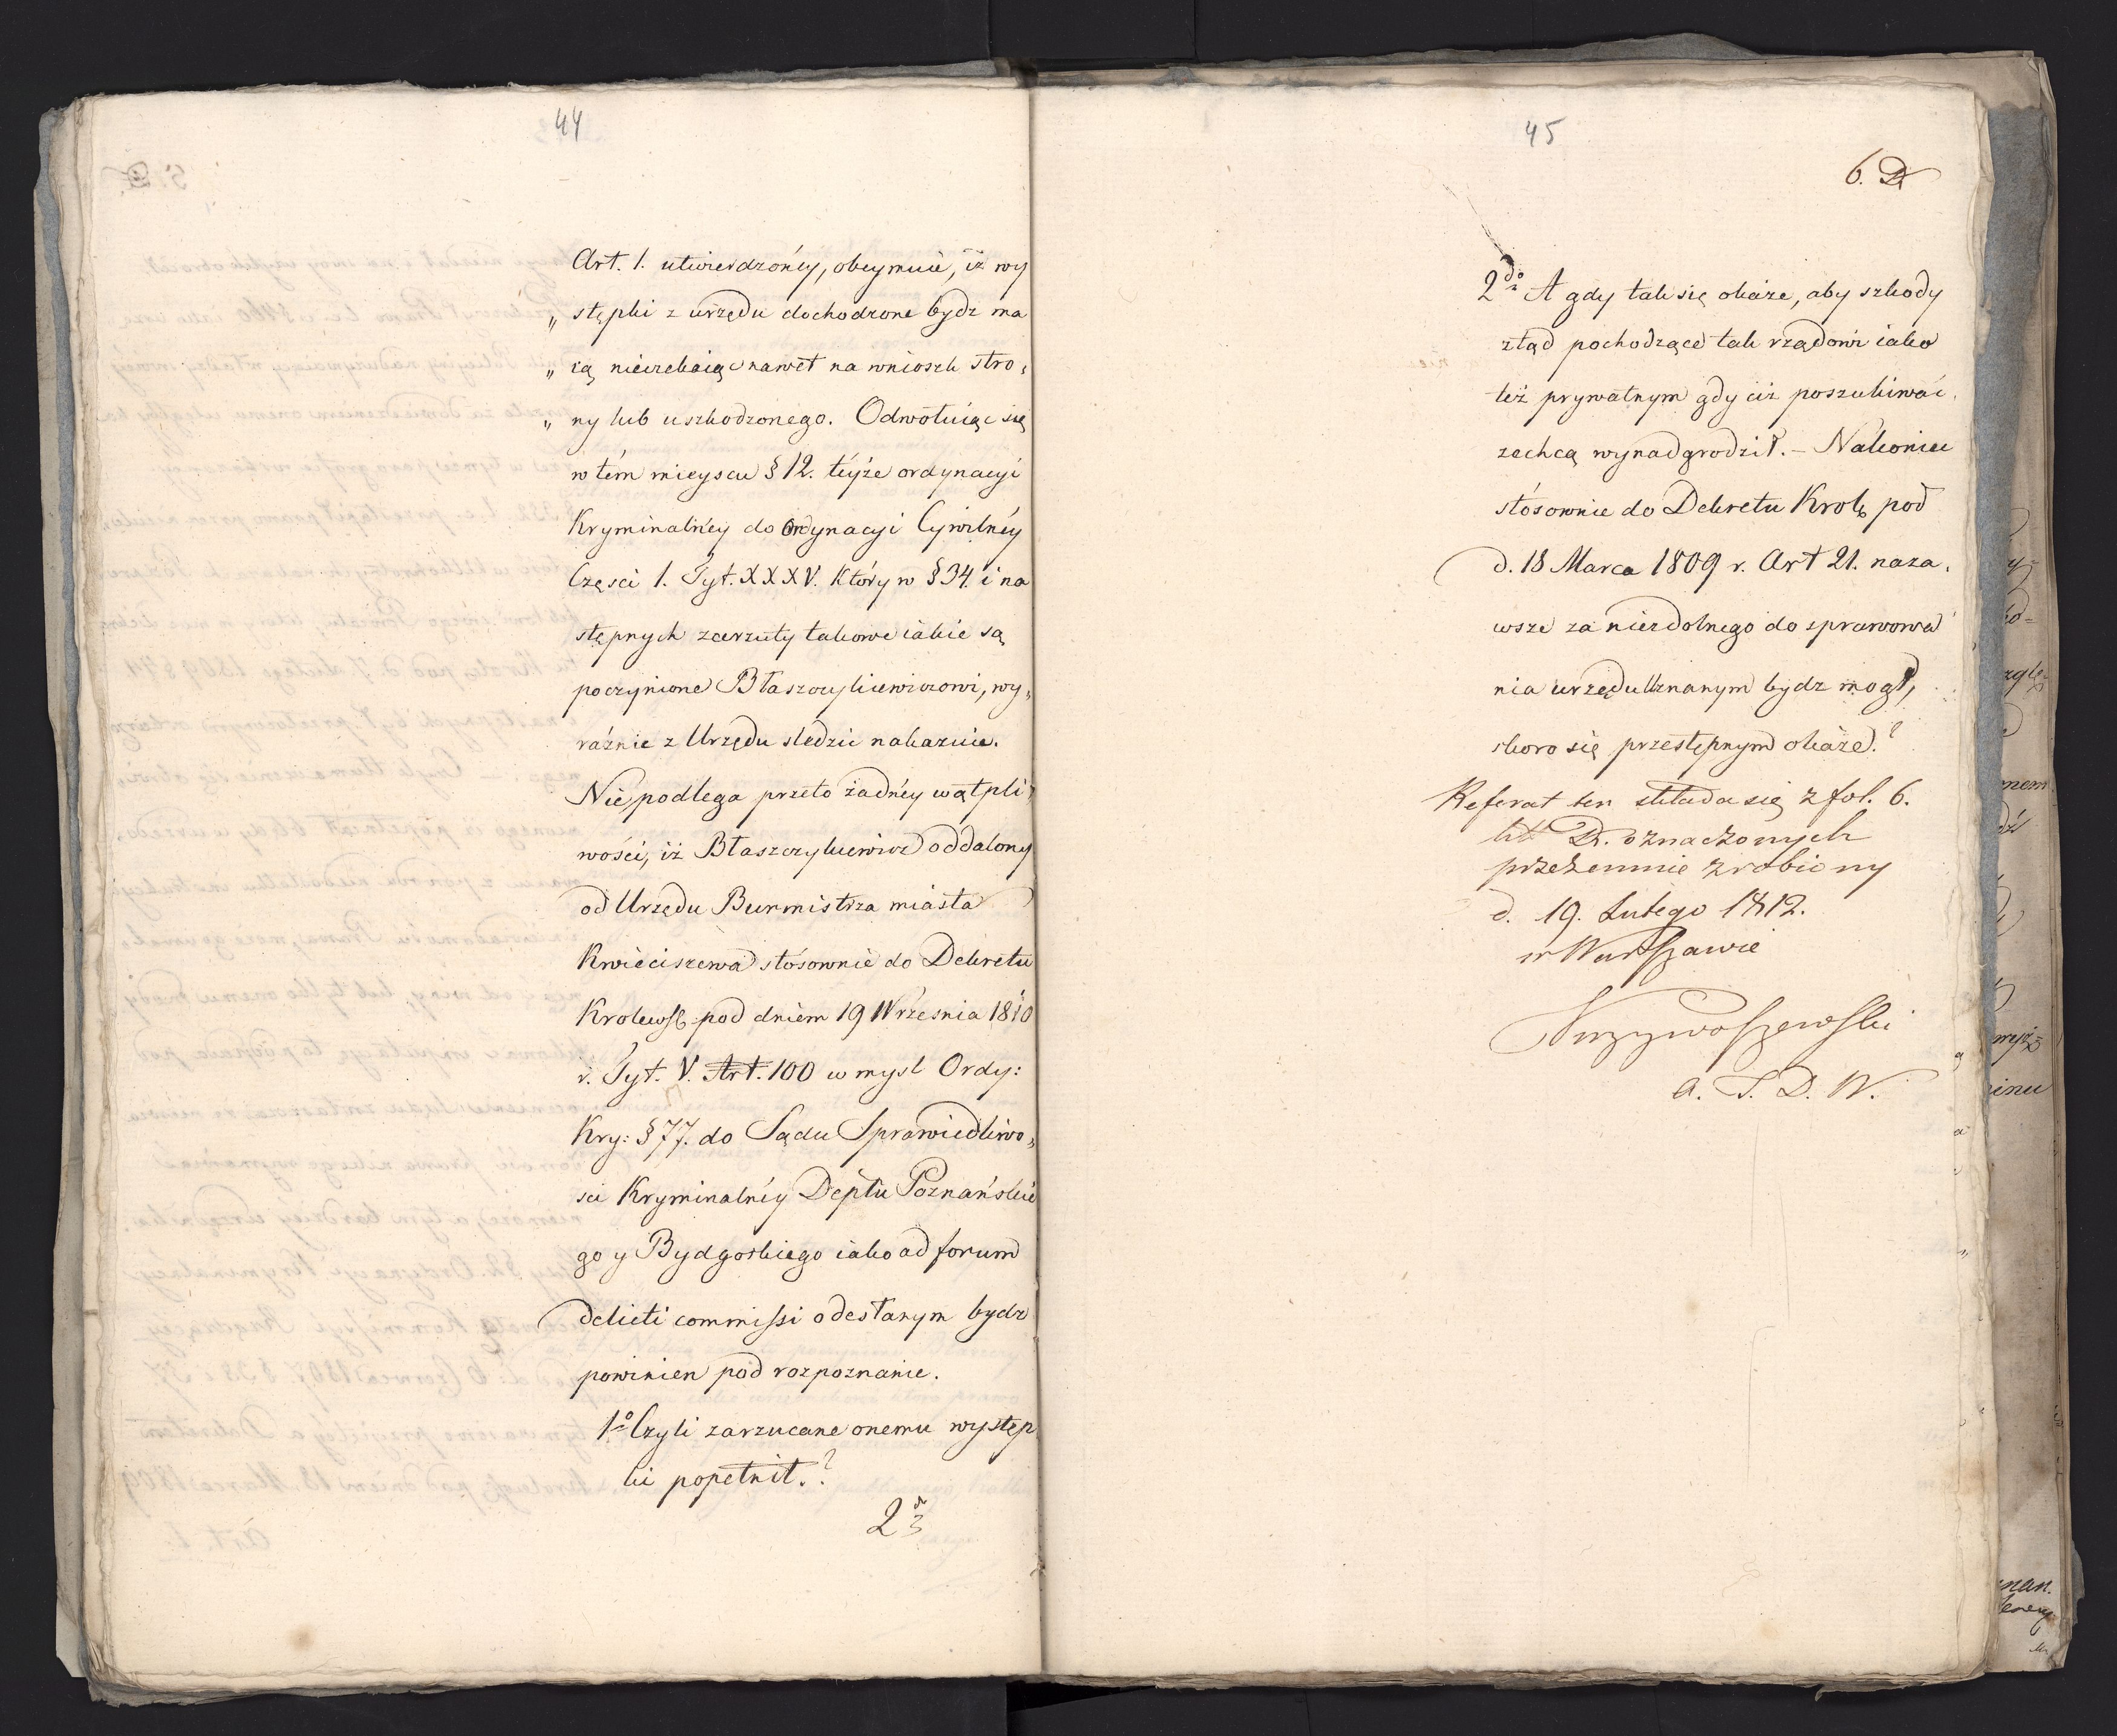 44
Art. 1. utwierdzonéy, obeymuie, iż wy
„ stępki z urzędu dochodzone bydz ma
„ ią nieczekaiąc nawet na wniosek stro„
„ ny lub uszkodzonego. Odwołuiąc się
w tém mieyscu § 12. téyże ordynacyi
Kryminalnéy do Ordynacyi Cywilnéy
Częsci 1. Tyt. XXXV. Który w § 34 i na
stępnych zarzuty takowe iakie są
poczynione Błaszczykiewiczowi, wy„
raźnie z Urzędu sledzić nakazuie.
Nie podlega przeto żadnéy wątpli„
wości, iż Błaszczykiewicz oddalony
od Urzędu Burmistrza miasta
Kwieciszewa stósownie do Dekretu
Krolewsk. pod dniem 19 Wrzesnia 1810
r. Tyt. V. Art. 100 w mysl Ordy:
Kry: § 77. do Sądu Sprawiedliwo„
sci Kryminalnéy Deptu Poznańskie
go y Bydgoskiego iako ad forum
delicti commissi odesłanym bydz
powinien pod rozpoznanie.
1o Czyli zarzucane onemu występ
ki popełnił.?
2o
45
6. D
2do A gdy tak się okaże, aby szkody
ztąd pochodzące tak rządowi iako
też prywatnym gdy ich poszukiwać
zechcą wynadgrodził. – Nakoniec
stósownie do Dekretu Krol. pod
d. 18 Marca 1809 r. Art 21. naza„
wsze za niezdolnego do sprawowa
nia urzędu Uznanym bydz mogł,
skoro się przestępnym okaże.?
Referat ten składa się z fol. 6.
litt D. oznaczonych
przezemnie zrobiony
d. 19. Lutego 1812.
w Warszawie
a. S. D. W.